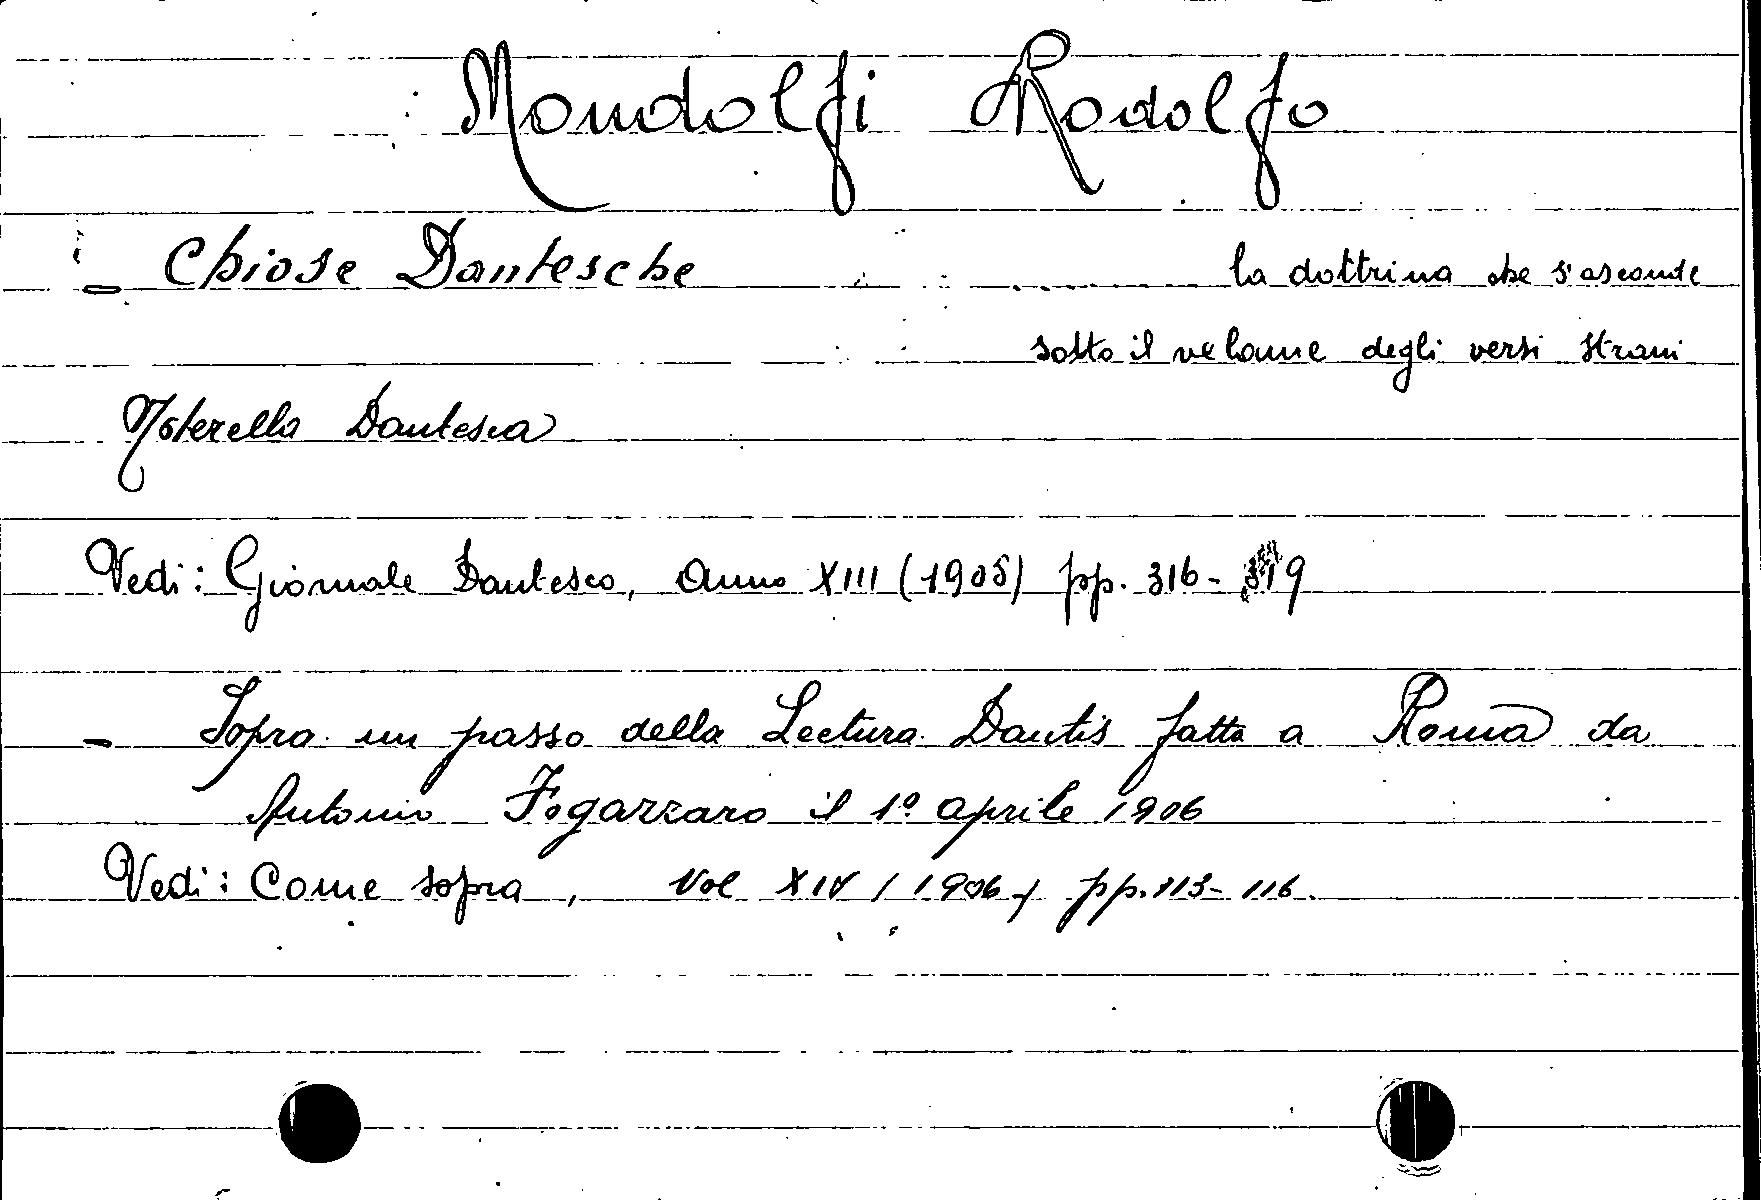 Mondolfi Rodolfo
- Chiose Dantesche ......... la dottrina che s'asconde
sotto il velame degli versi strani
Noterella Dantesca
Vedi: Giornale Dantesco, Anno XIII (1905) pp. 316-319
- Sopra un passo della Lectura Dantis fatta a Roma da
Antonio Fogazzaro il 1º aprile 1906
Vedi: Come sopra, Vol XIV (1906) pp. 113-116.